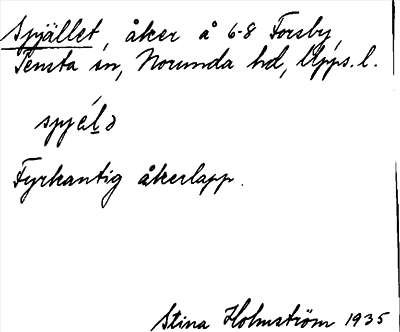 Spjället, åker å 6-8 Forsby,
Tensta sn, Norunda hd, Upps. l.
spjélə
Fyrkantig åkerlapp.
Stina Holmström 1935